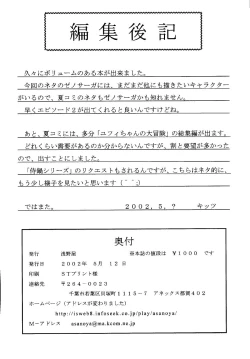 編集後記
久々にボリュームのある本が出来ました。
今回のネタのゼノサーガには、まだまだ他にも描きたいキャラクター
がいるので、夏コミのネタもゼノサーガかも知れません。
早くエピソード２が出てくれると良いんですけどね。
あと、夏コミには、多分「ユフィちゃんの大冒険」の総集編が出ます。
どれくらい需要があるのか分からないんですが、割と要望が多かった
ので、出すことにしました。
「侍鶴シリーズ」のリクエストもされるんですが、こちらはネタ的に、
もう少し様子を見たいと思います（＾＾；）
ではまた。　２００２，５，？　キッツ
奥付
発行　浅野屋　※本誌の値段は　￥１０００　です
発行日　２００２年　５月　１２日
印刷　ＳＴプリント様
連絡先　〒２６４－００２３
千葉市若葉区貝塚町１１１５－７　アネックス都賀４０２
ホームページ（アドレスが変わりました）
http://isweb8.infoseek.co.jp/play/asanoya/
Ｍ－アドレス　asanoya@ma.kcom.ne.jp